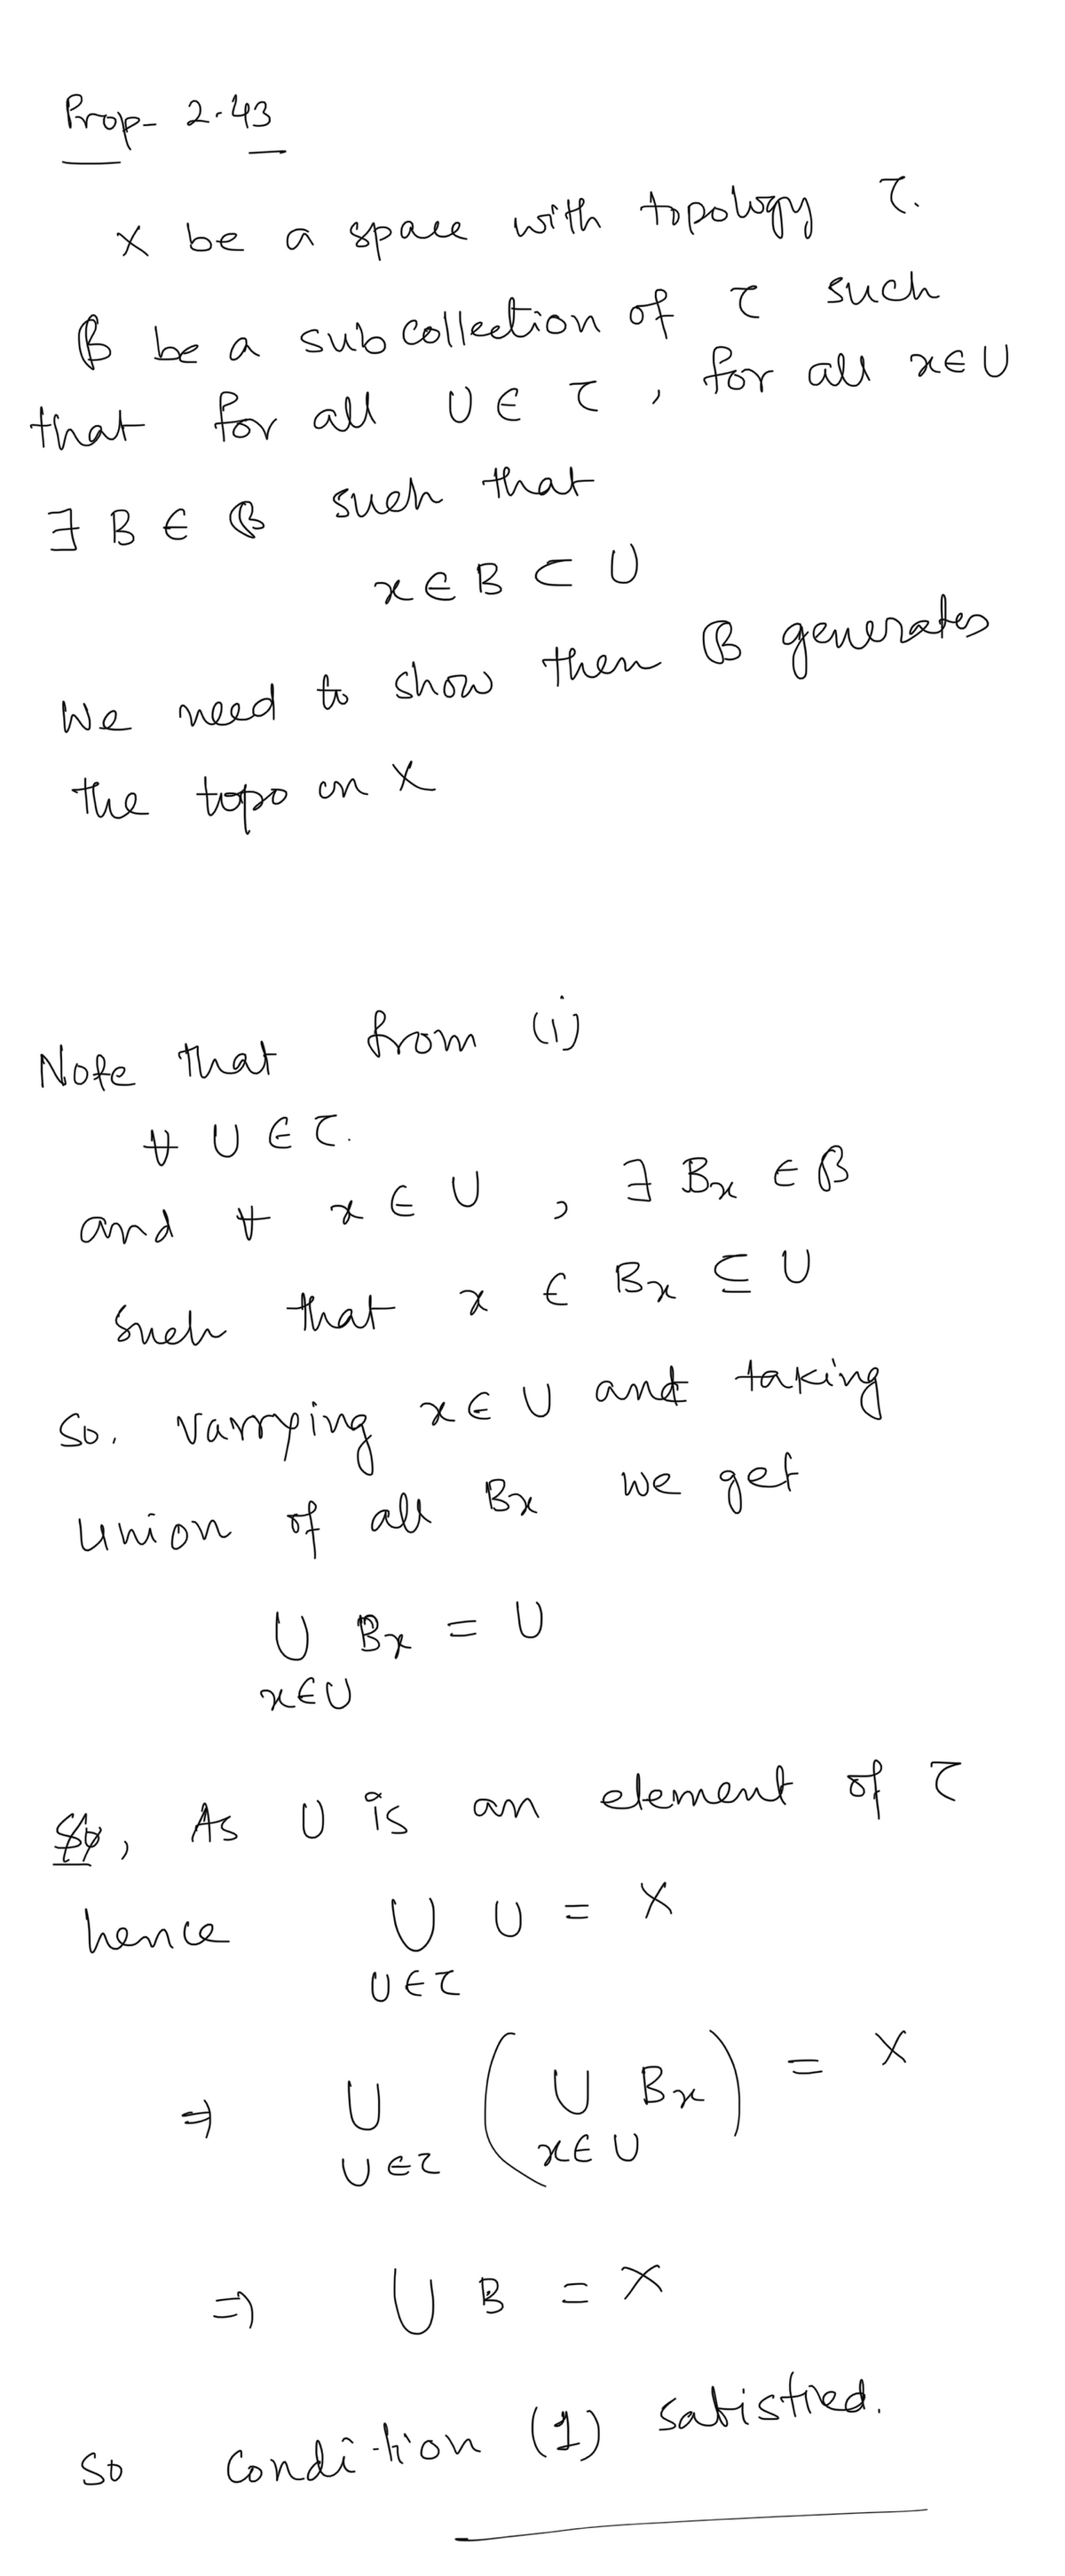 Prop- 2.43
X be a space with topology τ.
ℬ be a subcollection of τ such
that for all U ∈ τ, for all x ∈ U
∃ B ∈ ℬ such that
x ∈ B ⊂ U
We need to show then ℬ generates
the topo on X
Note that from (i)
∀ U ∈ τ.
and ∀ x ∈ U, ∃ Bx ∈ ℬ
such that x ∈ Bx ⊆ U
So. varrying x ∈ U and taking
union of all Bx we get
⋃ Bx = U
x∈U
So, As U is an element of τ
hence ⋃ U = X
U∈τ
⇒ ⋃ ( ⋃ Bx ) = X
U∈τ x∈U
⇒ ⋃ B = X
So condition (1) satisfied.